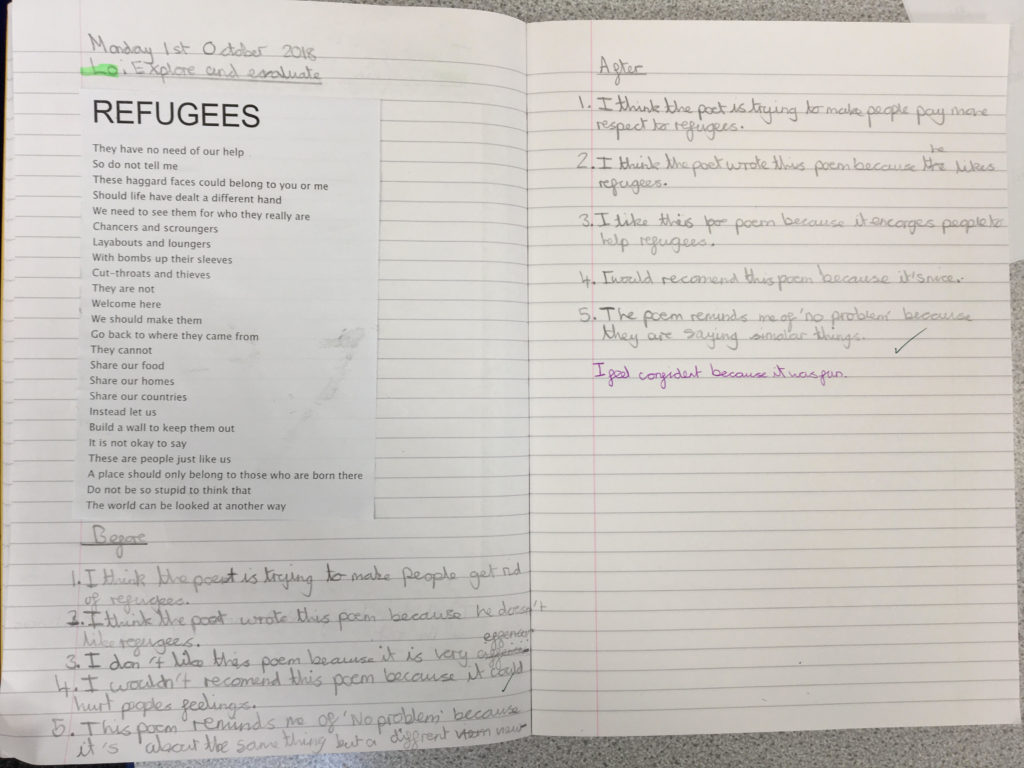 Monday 1st October 2018
Lo: Explore and evaluate
REFUGEES
They have no need of our help
So do not tell me
These haggard faces could belong to you or me
Should life have dealt a different hand
We need to see them for who they really are
Chancers and scroungers
Layabouts and loungers
With bombs up their sleeves
Cut-throats and thieves
They are not
Welcome here
We should make them
Go back to where they came from
They cannot
Share our food
Share our homes
Share our countries
Instead let us
Build a wall to keep them out
It is not okay to say
These are people just like us
A place should only belong to those who are born there
Do not be so stupid to think that
The world can be looked at another way
Before
1. I think the poet is trying to make people get rid
of refugees.
2. I think the poet wrote this poem because he doesn't
like refugees.
3. I don't like this poem because it is very
4. I wouldn't recomend this poem because it could
hurt peoples feelings.
5. This poem reminds me of 'No problem' because
it's about the same thing but a diffrent view
After
1. I think the poet is trying to make people pay more
respect to refugees.
2. I think the poet wrote this poem because he likes
refugees.
3. I like this poem because it encorges people to
help refugees.
4. I would recomend this poem because it's nice.
5. The poem reminds me of 'no problem' because
they are saying similar things.
I feel confident because it was fun.